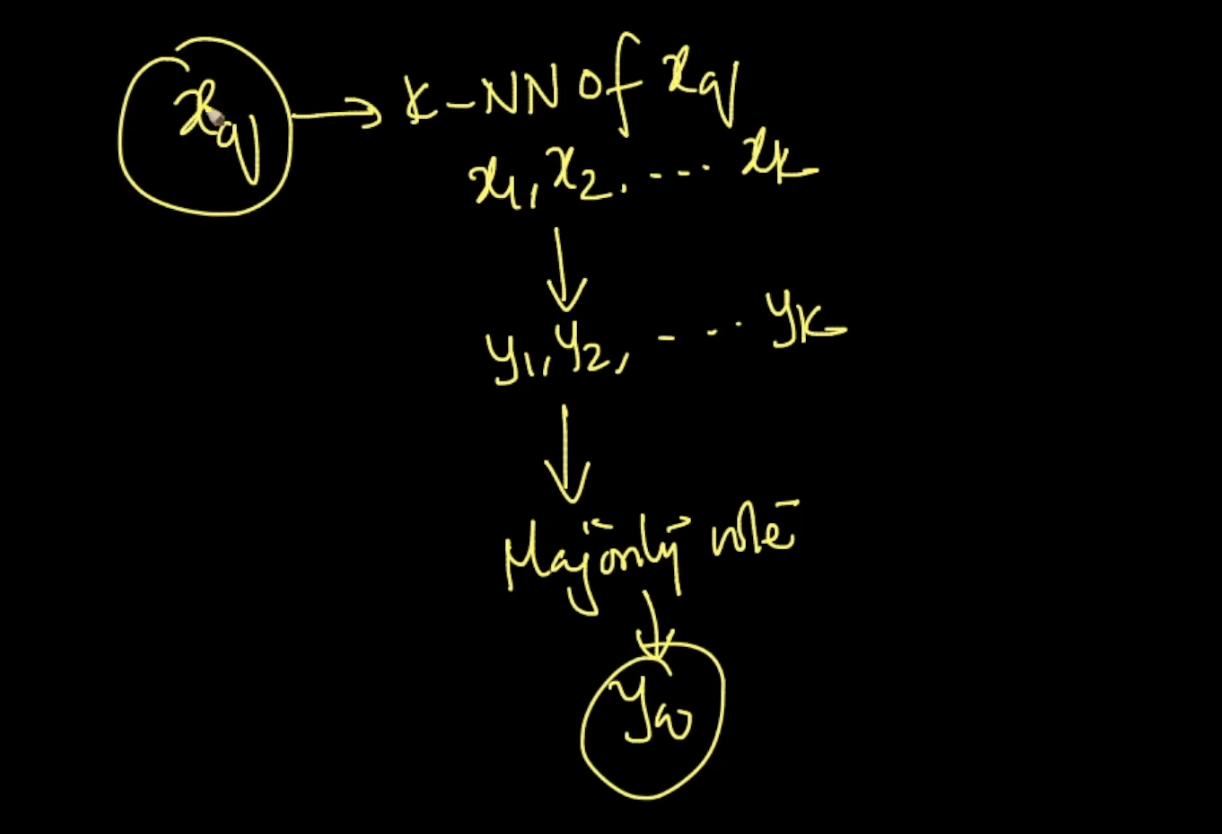 xq → K-NN of xq
x1, x2, .... xk
y1, y2, - ... yk
Majority vote
yq